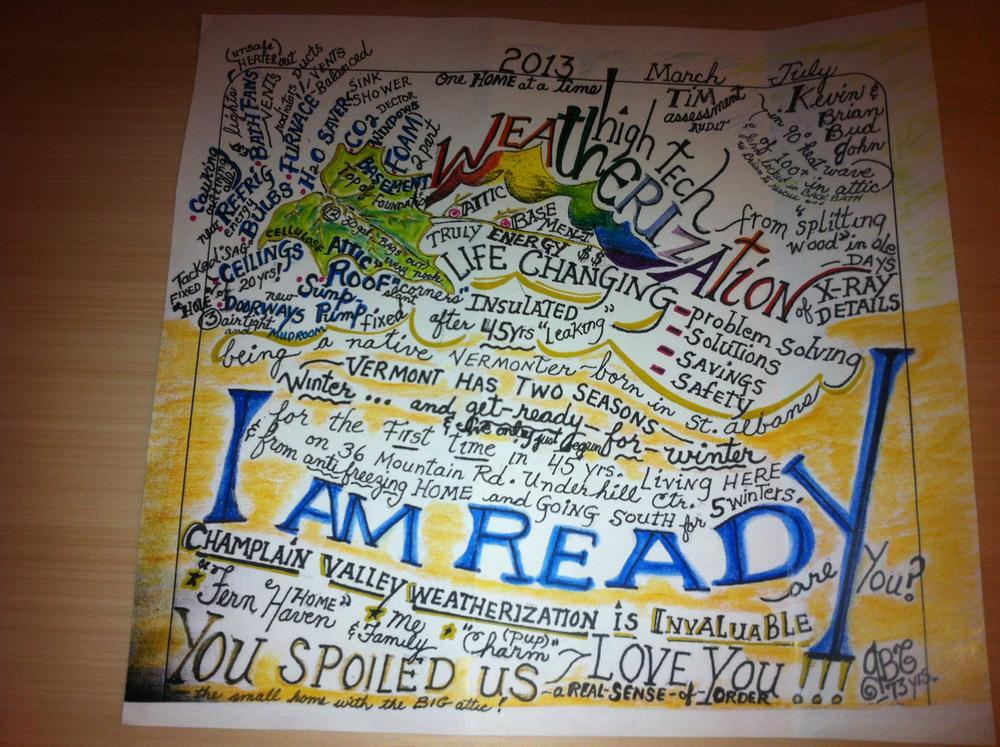 2013
One HOME at a time
March
TIM
assessment
AUDIT
July
Kevin &
Brian
Bud
John
in 90° heat wave
& of 100+ in attic
(unsafe)
HEATER out
lights
BATH FANS
VENTS
radiators
ducts
VENTS
FURNACE - Balanced
H2O SAVERS
SINK
SHOWER
CO2 DECTOR
WINDOWS
FOAM
2 part
BASEMENT
Top of FOUNDATION
REFRIG
new
energy
BULBS
CELLULOSE
ATTIC
ROOF
"corners"
slant
Tacked "SAG"
FIXED
CEILINGS
HOLE of 20 yrs!
new
DOORWAYS
Sump
Pump
fixed
③ airtight
and MUDROOM
high tech
WEATHERIZATION
ATTIC
BASEMENT
TRULY ENERGY $$
LIFE CHANGING
- problem solving
- Solutions
- Savings
- Safety
from "splitting
wood" in ole
DAYS
of X-RAY
DETAILS
INSULATED
after 45yrs "Leaking"
being a native VERMONTER - born in St. albans
VERMONT HAS TWO SEASONS
Winter... and get-ready-for-winter
& live only just begun
for the First time in 45 yrs. Living HERE
on 36 Mountain Rd. Underhill Ctr.
& from anti freezing HOME and GOING SOUTH for 5 winters.
I AM READY
are You?
CHAMPLAIN VALLEY WEATHERIZATION is INVALUABLE
"Fern Haven HOME" & me & Family "Charm" (pup)
YOU SPOILED US - LOVE YOU!!!
- the small home with the BIG attic!
- a REAL-SENSE-of-ORDER
73 yrs.